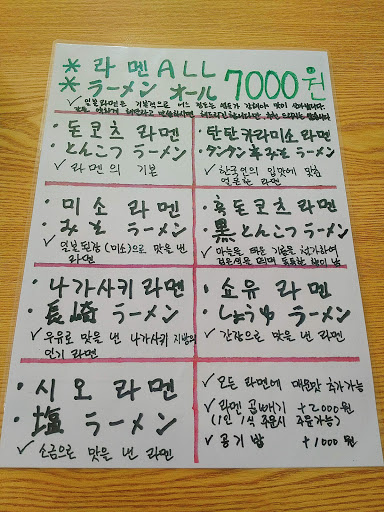 * 라멘 ALL 7000원
* ラーメン オール
✓ 일본라멘은 기본적으로 어느 정도는 염도가 강해야 맛이 살아납니다.
· 돈코츠 라멘
· とんこつ ラーメン
✓ 라멘의 기본
· 탄탄카라미소라멘
· タンタン辛みそラーメン
✓ 한국인의 입맛에 맞춘
얼큰한 라멘
· 미소 라멘
· みそ ラーメン
✓ 일본된장(미소)으로 맛을 낸
라멘
· 흑돈코츠 라멘
· 黒とんこつラーメン
✓ 마늘을 태운 기름을 첨가하여
검은색을 띄며 독특한 향이 남
· 나가사키 라멘
· 長崎 ラーメン
✓ 우유로 맛을 낸 나가사키 지방의
인기 라멘
· 소유 라멘
· しょうゆ ラーメン
✓ 간장으로 맛을 낸 라멘
· 시오 라멘
· 塩 ラーメン
✓ 소금으로 맛을 낸 라멘
✓ 모든 라멘에 매운맛 추가가능
✓ 라멘 곱빼기 +2000원
(1인 1식 주문시 주문가능)
✓ 공기밥 +1000원